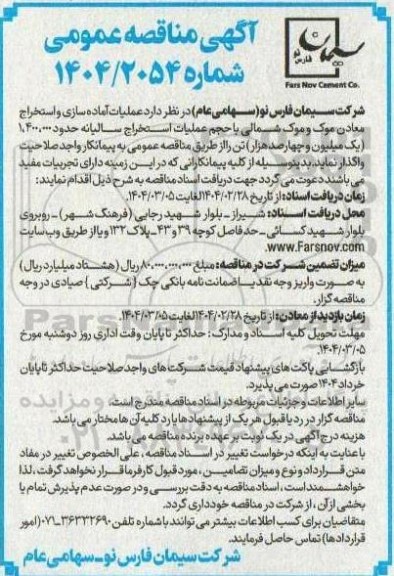 آگهی مناقصه عمومی
شماره ۱۴۰۴/۲۰۵۴
سیمان
فارس نو
Fars Nov Cement Co.
شرکت سیمان فارس نو (سهامی عام) در نظر دارد عملیات آماده سازی و استخراج
معادن موک و موک شمالی با حجم عملیات استخراج سالیانه حدود ۱,۴۰۰,۰۰۰
(یک میلیون و چهارصد هزار) تن را از طریق مناقصه عمومی به پیمانکار واجد صلاحیت
واگذار نماید. بدینوسیله از کلیه پیمانکارانی که در این زمینه دارای تجربیات مفید
می باشند دعوت می گردد جهت دریافت اسناد مناقصه به شرح ذیل اقدام نمایند:
زمان دریافت اسناد: از تاریخ ۱۴۰۴/۰۲/۲۸ لغایت ۱۴۰۴/۰۳/۰۵.
محل دریافت اسناد: شیراز ـ بلوار شهید رجایی (فرهنگ شهر) ـ روبروی
بلوار شهید کسائی ـ حد فاصل کوچه ۳۹ و ۴۳ ـ پلاک ۱۳۲ و یا از طریق وب سایت
www.Farsnov.com
میزان تضمین شرکت در مناقصه: مبلغ ۸۰,۰۰۰,۰۰۰,۰۰۰ ریال (هشتاد میلیارد ریال)
به صورت واریز وجه نقد یا ضمانت نامه بانکی چک (شرکتی) صیادی در وجه
مناقصه گزار.
زمان بازدید از معادن: از تاریخ ۱۴۰۴/۰۲/۲۸ لغایت ۱۴۰۴/۰۳/۰۵.
مهلت تحویل کلیه اسناد و مدارک: حداکثر تا پایان وقت اداری روز دوشنبه مورخ
۱۴۰۴/۰۳/۰۵.
بازگشایی پاکت های پیشنهاد قیمت شرکت های واجد صلاحیت حداکثر تا پایان
خرداد ۱۴۰۴ صورت می پذیرد.
سایر اطلاعات و جزئیات مربوطه در اسناد مناقصه مندرج است.
مناقصه گزار در رد یا قبول هر یک از پیشنهادها یا رد کلیه آن ها مختار می باشد.
هزینه درج آگهی در یک نوبت بر عهده برنده مناقصه می باشد.
با عنایت به اینکه درخواست تغییر در اسناد مناقصه، علی الخصوص تغییر در مفاد
متن قرارداد و نوع و میزان تضامین، مورد قبول کارفرما قرار نخواهد گرفت، لذا
خواهشمند است، اسناد مناقصه به دقت بررسی و در صورت عدم پذیرش تمام یا
بخشی از آن، از شرکت در مناقصه خودداری گردد.
متقاضیان برای کسب اطلاعات بیشتر می توانند با شماره تلفن ۳۶۳۳۲۶۹۰-۰۷۱ (امور
قراردادها) تماس حاصل فرمایند.
شرکت سیمان فارس نو ـ سهامی عام